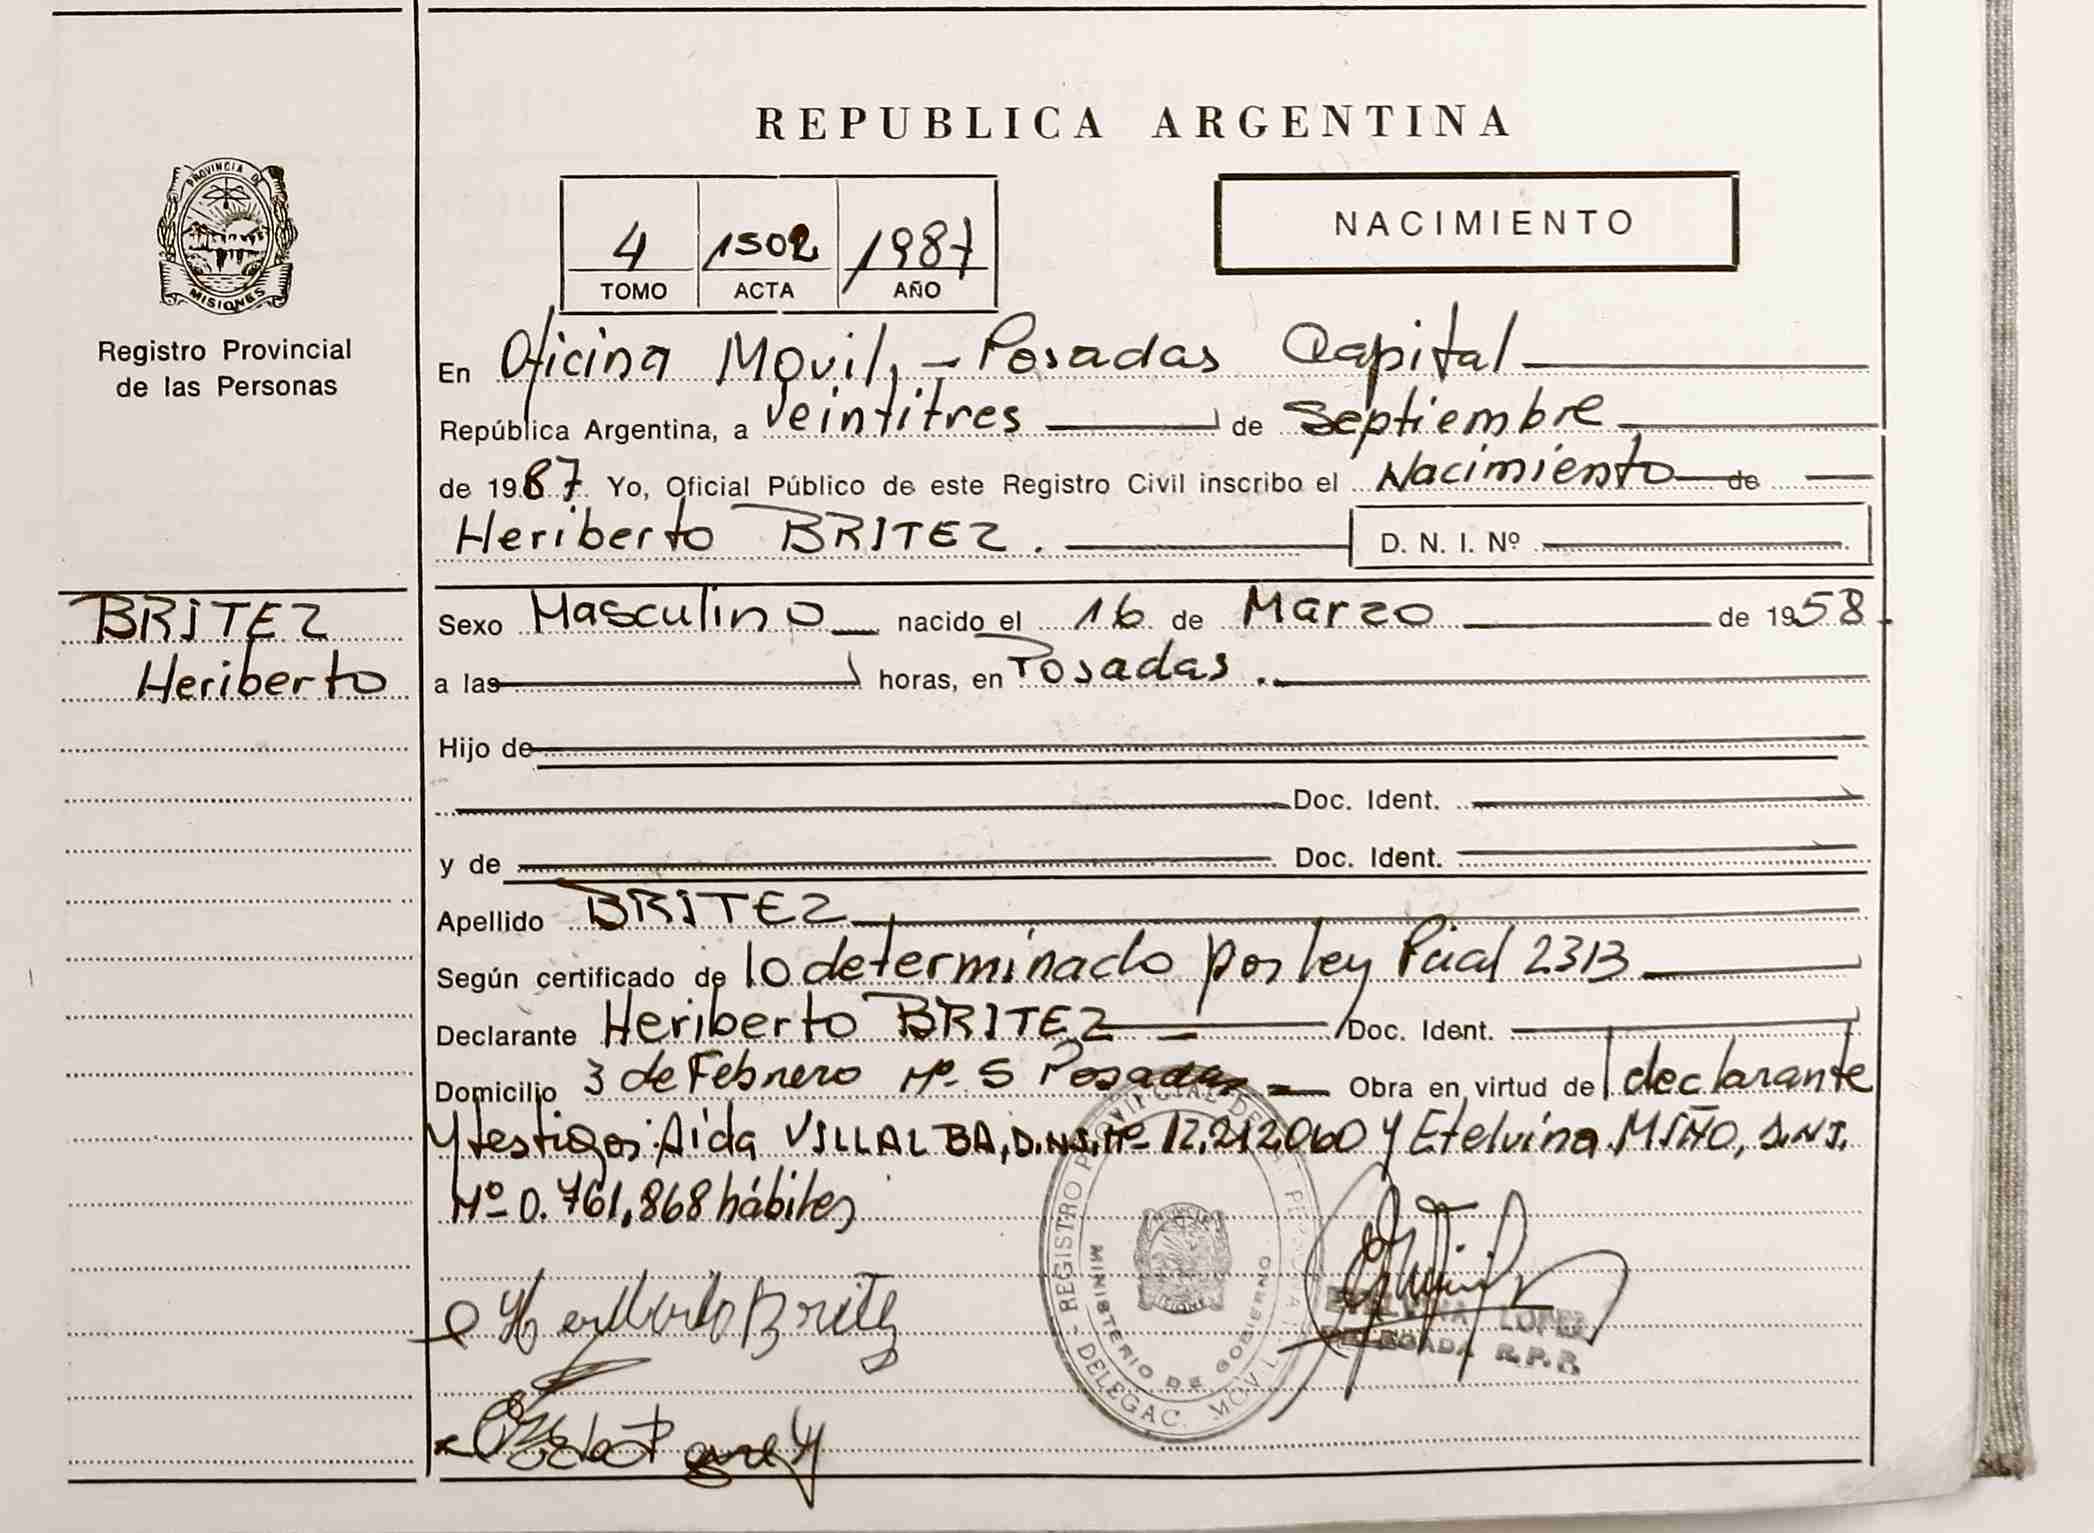 REPUBLICA ARGENTINA
PROVINCIA DE
MISIONES
Registro Provincial
de las Personas
NACIMIENTO
4 1502 1987
TOMO ACTA AÑO
En Oficina Movil, - Posadas Capital
República Argentina, a veintitres de Septiembre
de 1987. Yo, Oficial Público de este Registro Civil inscribo el Nacimiento de
Heriberto BRITEZ. D. N. I. Nº
BRITEZ
Heriberto
Sexo Masculino nacido el 16 de Marzo de 1958.
a las horas, en Posadas.
Hijo de
Doc. Ident.
y de Doc. Ident.
Apellido BRITEZ
Según certificado de lo determinado por ley Pcial 2313
Declarante Heriberto BRITEZ Doc. Ident.
Domicilio 3 de Febrero Nº 5 Posadas Obra en virtud de declarante
y testigos: Aida VILLALBA, D.N.I. Nº 12.212.060 y Etelvina MIÑO, D.N.I.
Nº 0.761.868 hábiles
REGISTRO PROVINCIAL DE LAS PERSONAS
MINISTERIO DE GOBIERNO
DELEGAC. MOVIL
Heriberto Britez
ETELVINA LOPEZ
DELEGADA R.P.P.